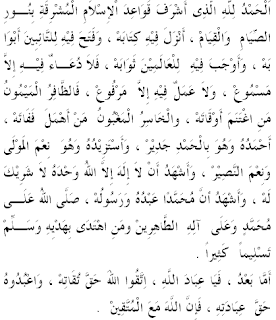 اَلْحَمْدُ لِلّٰهِ الَّذِى أَشْرَفَ قَوَاعِدَ الْإِسْلَامِ الْمُشْرِقَةِ بِنُــوْرِ
الصِّيَامِ وَالْقِيَامِ ، أَنْزَلَ فِيْهِ كِتَابَهُ ، وَفَتَحَ فِيْهِ لِلتَّائِبِيْنَ أَبْوَا
بَهُ ، وَأَوْجَبَ فِيْهِ لِلْعَامِلِيْنَ ثَوَابَهُ ، فَلاَ دُعَــاءٌ فِيْــهِ إِلاَّ
مَسْمُوْعٌ ، وَلاَ عَمَلٌ فِيْهِ إِلاَّ مَرْفُوْعٌ ، فَالظَّافِرُ الْمَيْمُوْنُ
مَنِ اغْتَنَمَ أَوْقَاتَهُ ، وَالْخَاسِرُ الْمَغْبُوْنُ مَنْ أَهْمَلَ فَفَاتَهُ ،
أَحْمَدُهُ وَهُوَ بِالْحَمْدِ جَدِيْرٌ ، وَأَسْتَزِيْدُهُ وَهُوَ نِعْمَ الْمَوْلٰى
وَنِعْمَ النَّصِيْرُ ، وَأَشْهَدُ أَنْ لاَ إِلٰهَ إِلاَّ اللهُ وَحْدَهُ لاَ شَرِيْكَ
لَهُ ، وَأَشْهَدُ أَنَّ مُحَمَّدًا عَبْدُهُ وَرَسُوْلُهُ ، صَلَّى اللهُ عَلَــى
مُحَمَّدٍ وَعَلَى آلِهِ الطَّاهِرِيْنَ وَمَنِ اهْتَدَى بِهَدْيِهِ وَسَــلَّمَ
تَسْلِيْماً كَثِيْراً .
أَمَّا بَعْدُ ، فَيَا عِبَادَ اللَّهِ ، اِتَّقُوا اللهَ حَقَّ تُقَاتِهِ ، وَاعْبُدُوْهُ
حَقَّ عِبَادَتِهِ ، فَإِنَّ اللهَ مَعَ الْمُتَّقِيْنَ .